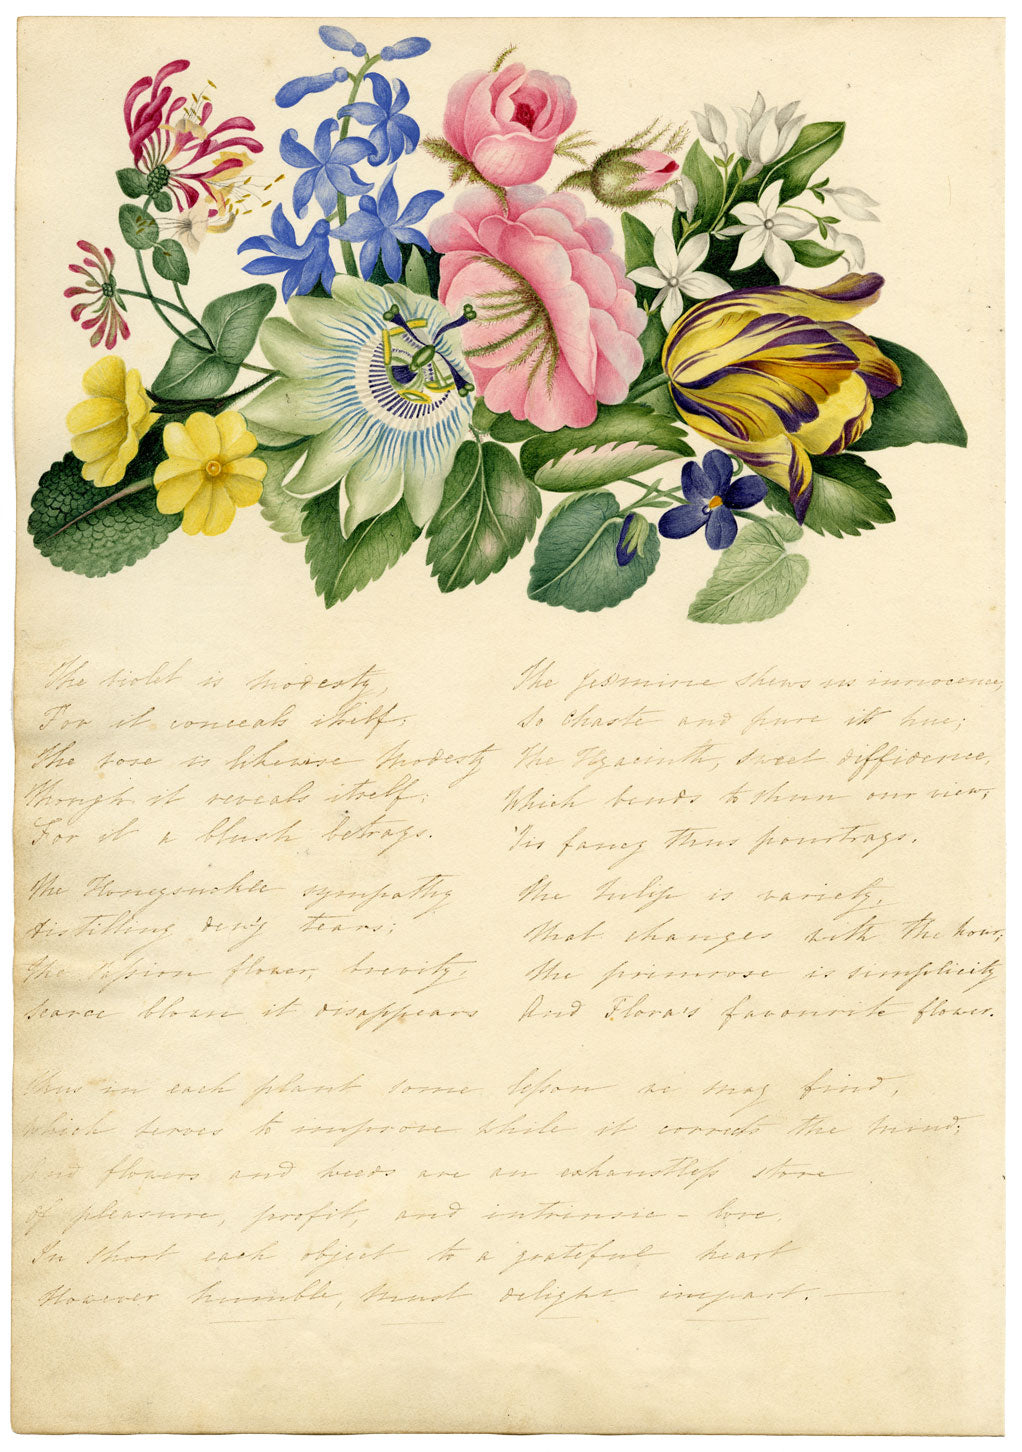 The violet is modesty,
For it conceals itself;
The rose is likewise modesty
Though it reveals itself;
For it a blush betrays.
The Honeysuckle sympathy
distilling dewy tears;
The Passion flower, brevity,
Scarce blown it disappears
The Jessmine shews us innocence,
So chaste and pure its hue;
The Hyacinth, sweet diffidence,
Which bends to shun our view;
'Tis fancy thus pourtrays.
The tulip is variety,
That changes with the hour;
The primrose is simplicity
And Flora's favourite flower.
Thus in each plant some lesson we may find,
Which serves to improve while it corrects the mind;
And flowers and weeds are an exhaustless store
Of pleasure, profit, and intrinsic - lore.
In short each object to a grateful heart
However humble, must delight impart. —